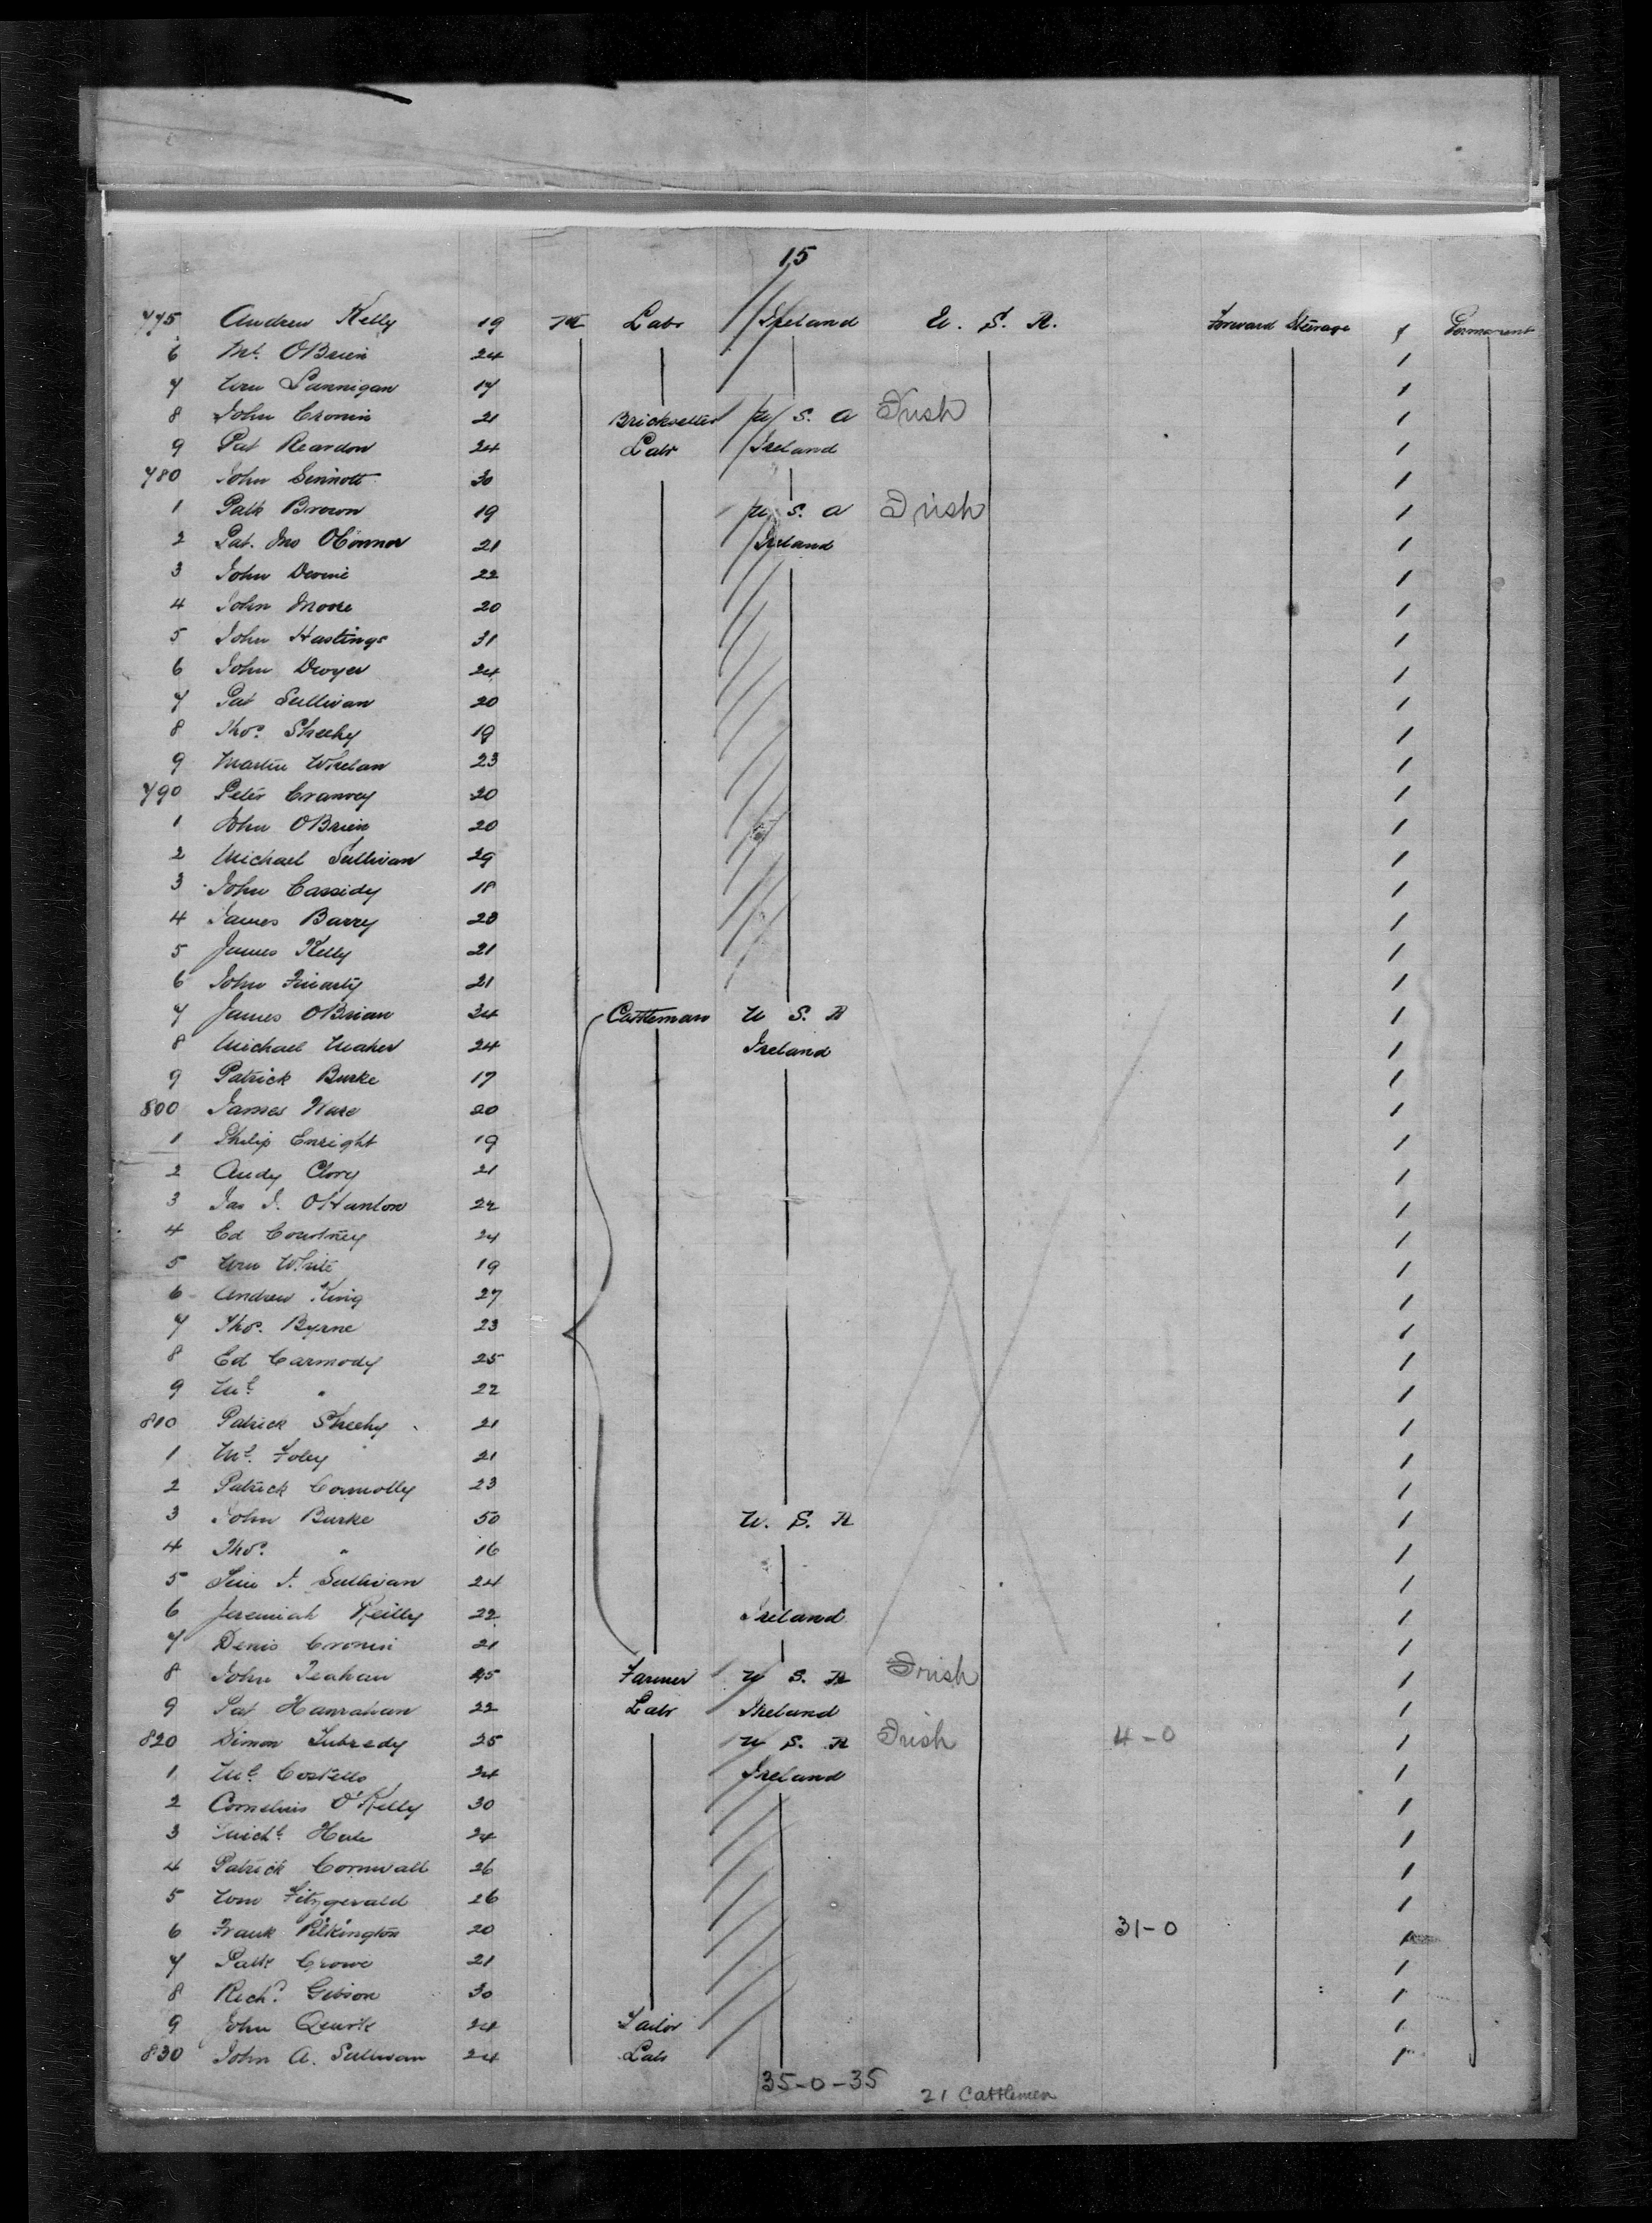 15
775 Andrew Kelly 19 M Labr Ireland U. S. A. Forward Steerage 1 Permanent
6 Ml. OBrien 24 1
7 Wm Lannigan 17 1
8 John Cronin 21 U S. A Irish 1
9 Pat Reardon 24 Labr Ireland 1
780 John Sinnott 30 1
1 Patk Brown 19 U. S. A Irish 1
2 Pat. Jno OConnor 21 Ireland 1
3 John Devine 22 1
4 John Moore 20 1
5 John Hastings 31 1
6 John Dwyer 24 1
7 Pat Sullivan 20 1
8 Thos. Sheehy 19 1
9 Martin Whelan 23 1
790 Peter 20 1
1 John OBrien 20 1
2 Michael Sullivan 29 1
3 John Cassidy 18 1
4 James Barry 20 1
5 James Kelly 21 1
6 John 21 1
7 James OBrian 24 Cattleman U S. A 1
8 Michael Maher 24 Ireland 1
9 Patrick Burke 17 1
800 James Ware 20 1
1 Philip Enright 19 1
2 Andy Clory 21 1
3 Jas J. OHanlon 22 1
4 Ed Courtney 24 1
5 Wm White 19 1
6 Andrew King 27 1
7 Thos. Byrne 23 1
8 Ed Carmody 25 1
9 Ml. " 22 1
810 Patrick Sheehy 21 1
1 Ml. Foley 21 1
2 Patrick Connolly 23 1
3 John Burke 50 U. S. A 1
4 Thos. " 16 1
5 J. Sullivan 24 1
6 Jeremiah Reilly 22 Ireland 1
7 Denis Cronin 21 1
8 John Teahan 45 Farmer U S. A Irish 1
9 Pat Hanrahan 22 Labr Ireland 1
820 Simon 25 U S. A Irish 4-0 1
1 Ml. Costello 24 Ireland 1
2 Cornelius O'Kelly 30 1
3 Michl. 24 1
4 Patrick Cornwall 26 1
5 Wm Fitzgerald 26 1
6 Frank Pilkington 20 31-0 1
7 Patk Crowe 21 1
8 Richd. Gibson 30 1
9 John Quirk 24 Tailor 1
830 John A. Sullivan 24 Labr 1
35-0-35
21 Cattlemen